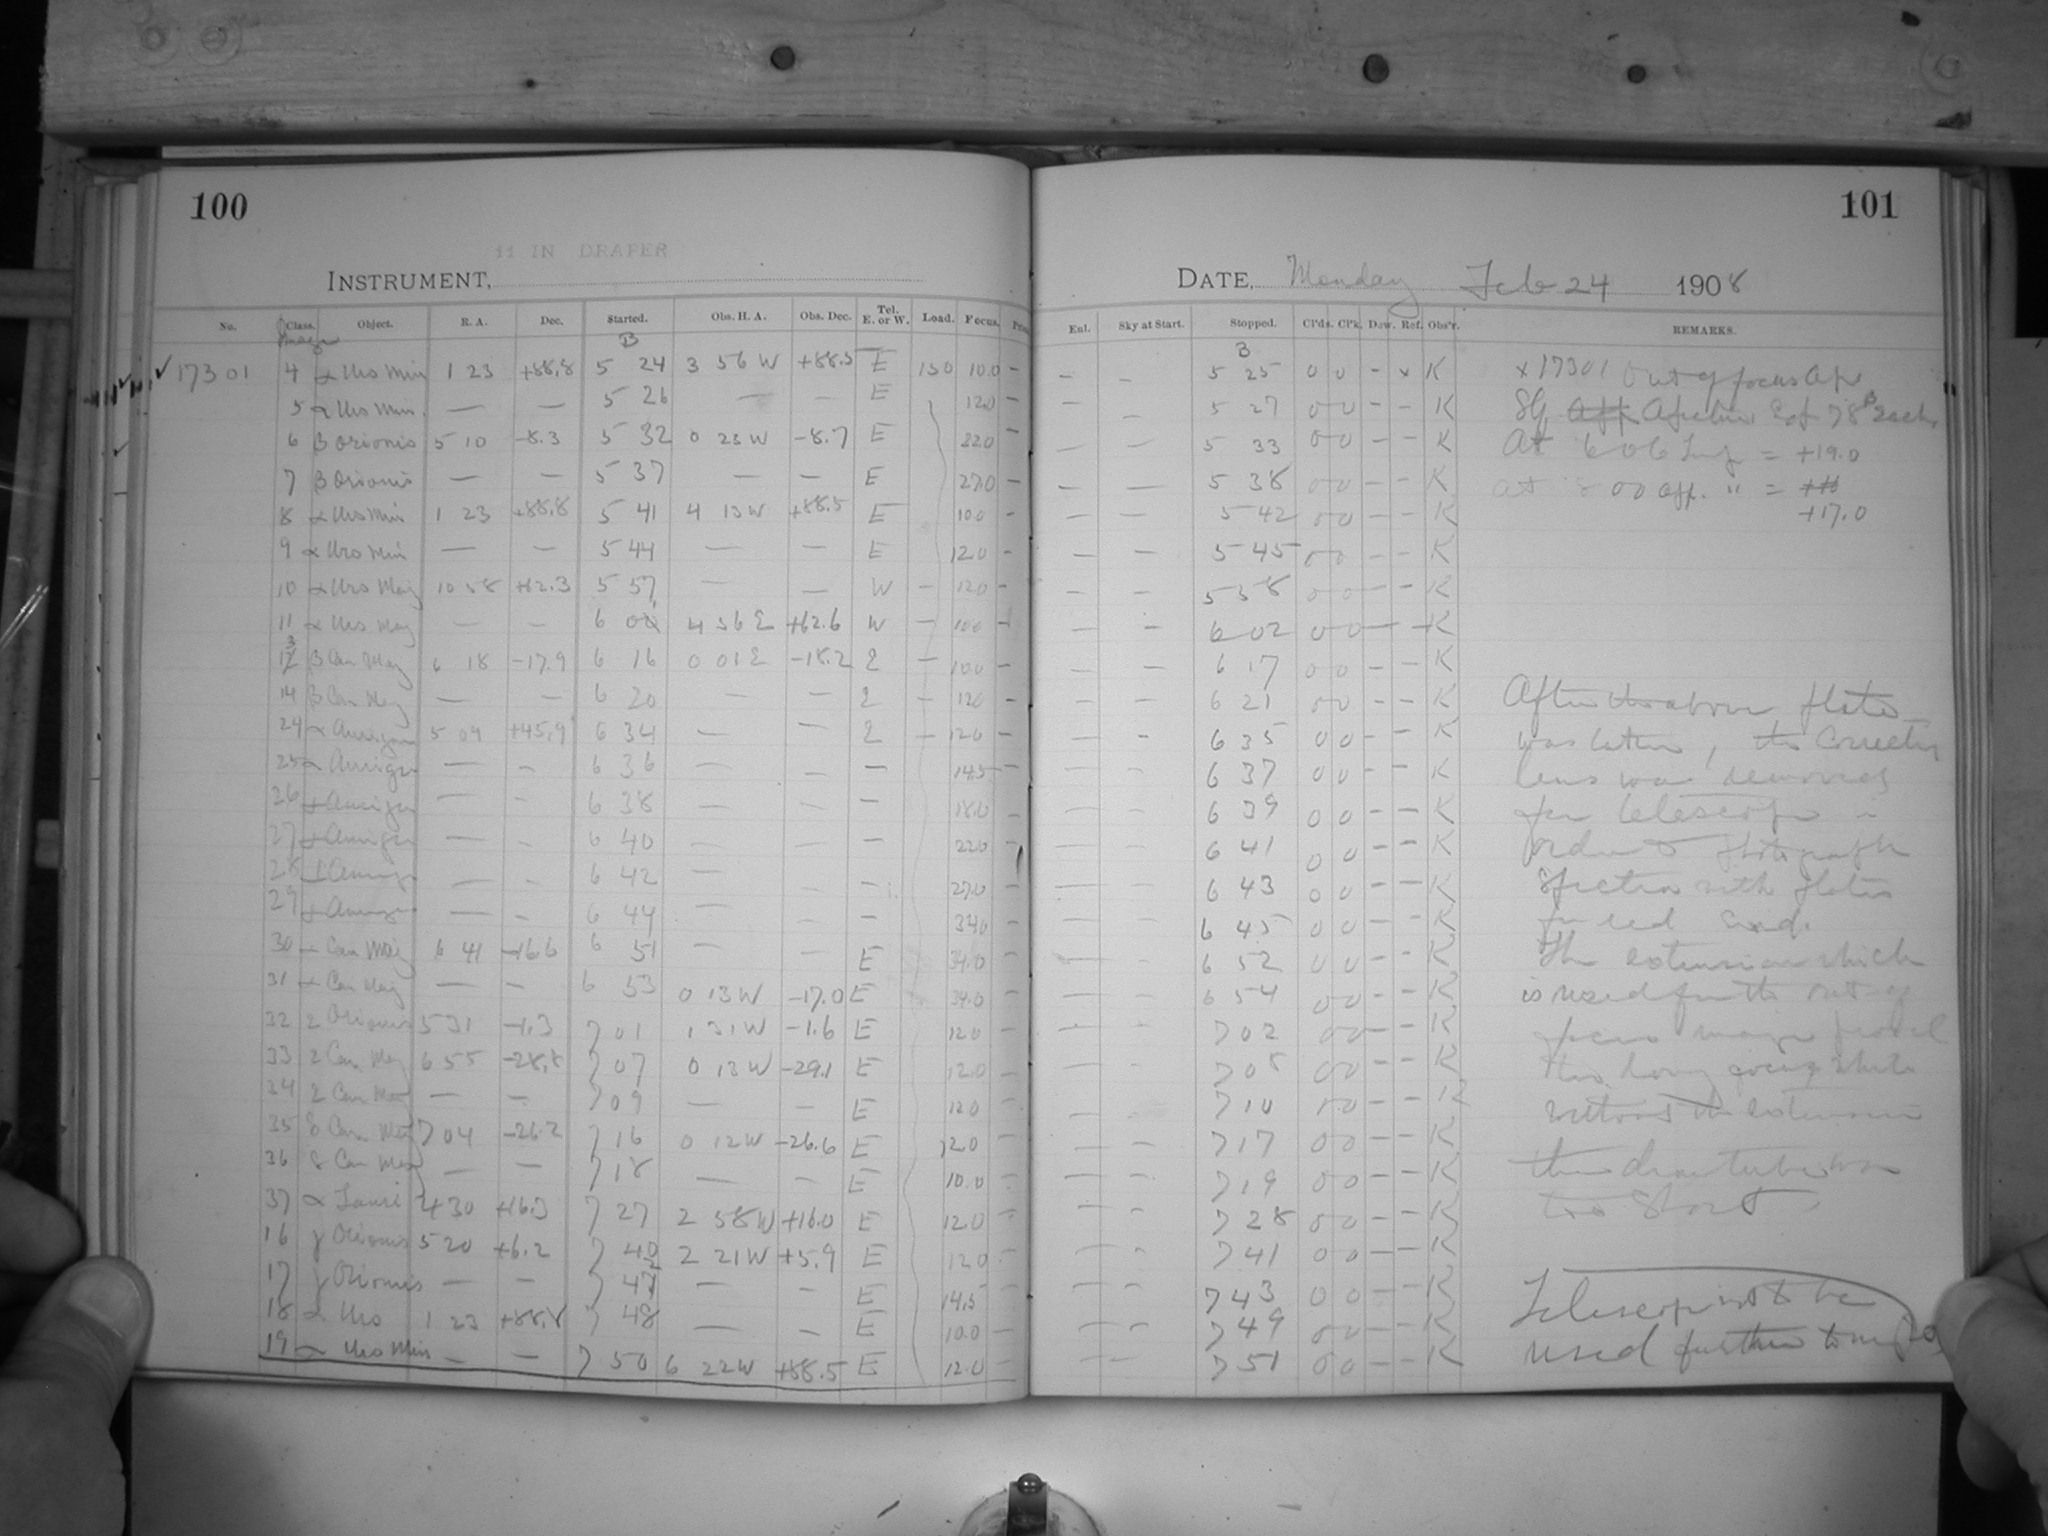 100
101
11 IN DRAPER
INSTRUMENT,
DATE, Monday Feb 24 1908
No. Class. Object. R. A. Dec. Started. Obs. H. A. Obs. Dec. Tel. E. or W. Load. Focus.
Enl. Sky at Start. Stopped. Cl'ds. Cl'k. Dew. Ref. Obs'r. REMARKS.
Image
✓ 17301 4 α Urs Min 1 23 +88.8 5 24 3 56 W +88.5 E 150 10.0 – – – 5 25 0 0 – x K x 17301 Out of focus
5 α Urs Min. — — 5 26 — – E 12.0 – – 5 27 0 0 – – K
6 β Orionis 5 10 -8.3 5 32 0 23 W -8.7 E 22.0 – — — 5 33 0 0 – – K At 6 06 = +19.0
7 β Orionis — — 5 37 — — E 27.0 – — — 5 38 0 0 – – K At 8 00 app. " =
8 α Urs Min 1 23 +88.8 5 41 4 13 W +88.5 E 10.0 – — — 5 42 0 0 – – K +17.0
9 α Urs Min — — 5 44 — — E 12.0 – — – 5 45 0 0 – – K
10 α Urs Maj 10 58 +62.3 5 57 — — W – 12.0 – – – 5 58 0 0 – – K
11 α Urs Maj — — 6 00 4 56 E +62.6 W – 10.0 — – 6 02 0 0 — – K
13 β Can Maj 6 18 -17.9 6 16 0 01 E -18.2 E – 10.0 — – 6 17 0 0 – – K
14 β Can Maj — — 6 20 – – E – 12.0 – – – 6 21 0 0 – – K After the above plate
24 α Aurigae 5 09 +45.9 6 34 — – E – 12.0 – – – 6 35 0 0 – – K was taken, the correcting
25 α Aurigae — – 6 36 – – – 14.5 – — – 6 37 0 0 – – K lens was removed
26 α Aurigae — – 6 38 — – – 18.0 – — – 6 39 0 0 – – K telescope in
27 α Aurigae — – 6 40 — – – 22.0 — – 6 41 0 0 – – K order to photograph
28 α Aurigae — – 6 42 — – – 27.0 – — – 6 43 0 0 – – K spectra with plates
29 α Aurigae — – 6 44 — – – 34.0 – — – 6 45 0 0 – – K red end.
30 α Can Maj 6 41 -16.6 6 51 — – E 34.0 – — – 6 52 0 0 – – K The extension which
31 α Can Maj — – 6 53 0 13 W -17.0 E 34.0 – — – 6 54 0 0 – – K is used for the out of
32 ε Orionis 5 31 -1.3 7 01 1 31 W -1.6 E 12.0 – — – 7 02 0 0 – – K focus images
33 ε Can Maj 6 55 -28.8 7 07 0 13 W -29.1 E 12.0 – — – 7 08 0 0 – – K focus while
34 ε Can Maj — – 7 09 — – E 12.0 – — – 7 10 0 0 – – K without the extension
35 δ Can Maj 7 04 -26.2 7 16 0 12 W -26.6 E 12.0 – — – 7 17 0 0 – – K the draw tube was
36 δ Can Maj — – 7 18 — – E 10.0 – — – 7 19 0 0 – – K too short
37 α Tauri 4 30 +16.3 7 27 2 58 W +16.0 E 12.0 – – – 7 28 0 0 – – K
16 γ Orionis 5 20 +6.2 7 40 2 21 W +5.9 E 12.0 – — – 7 41 0 0 – – K
17 γ Orionis — – 7 42 — – E 14.5 – – – 7 43 0 0 – – K Telescope not to be
18 α Urs 1 23 +88.8 7 48 — – E 10.0 – – – 7 49 0 0 – – K used further
19 α Urs Min – – 7 50 6 22 W +88.5 E 12.0 – – – 7 51 0 0 – – K